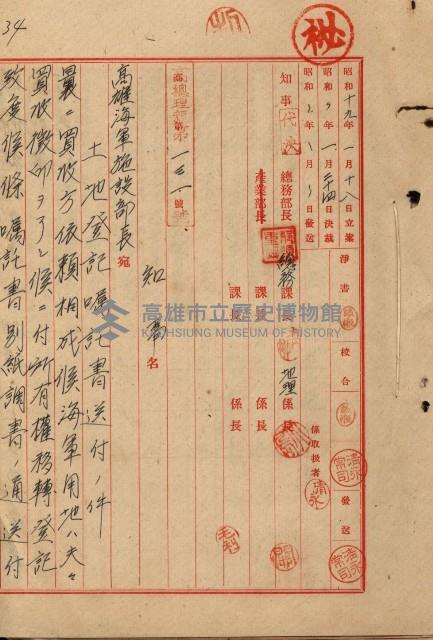 34
秘
昭和十九年一月十八日立案
昭和〃年一月二十四日決裁
昭和〃年 月 日発送
淨書
校合
発送
係取扱者
知事
代決
總務部長
總務課長
地理係長
産業部長
課長
係長
課長
係長
高總理第一三一號
知事名
高雄海軍施設部長宛
土地登記囑託書送付ノ件
曩ニ買收方依賴相成候海軍用地ハ夫々
買收徵印ヲ了シ候ニ付所有權移轉登記
致度候條囑託書別紙調書ノ通送付
高雄市立歷史博物館
KAOHSIUNG MUSEUM OF HISTORY